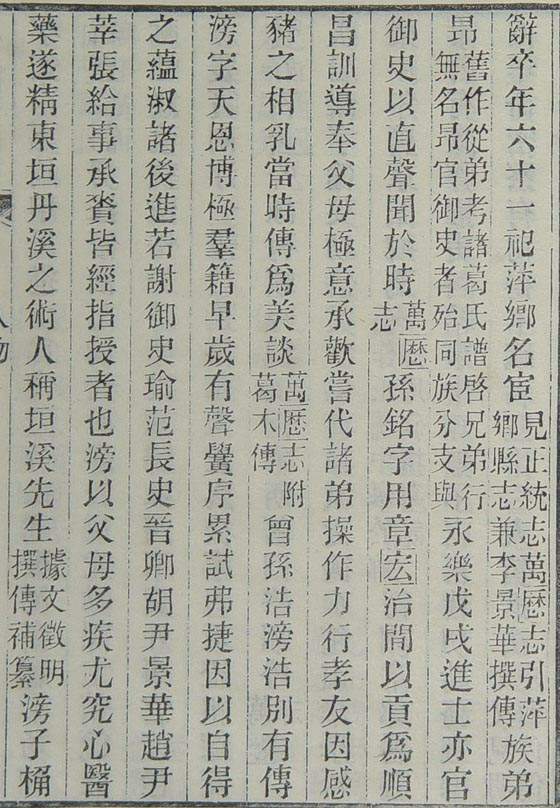 辭卒年六十一祀萍鄉名宦見正統志萬曆志引萍鄉縣志兼李景華撰傳族弟
昂舊作從弟考諸葛氏譜啓兄弟行無名昂官御史者殆同族分支與永樂戊戌進士亦官
御史以直聲聞於時萬曆志孫銘字用章宏治間以貢爲順
昌訓導奉父母極意承歡嘗代諸弟操作力行孝友因感
豬之相乳當時傳爲美談萬曆志附葛木傳曾孫浩滂浩別有傳
滂字天恩博極羣籍早歲有聲黌序累試弗捷因以自得
之蘊淑諸後進若謝御史瑜范長史晉卿胡尹景華趙尹
莘張給事承賚皆經指授者也滂以父母多疾尤究心醫
藥遂精東垣丹溪之術人稱垣溪先生據文徵明撰傳補纂滂子桶